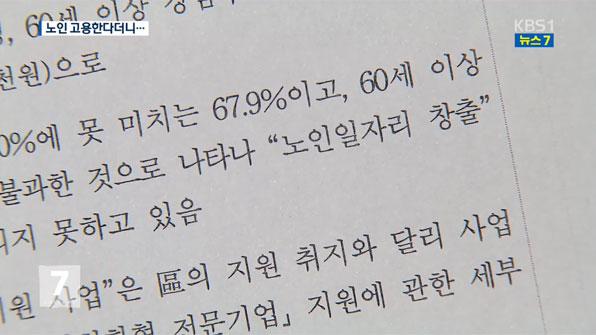 노인 고용한다더니…
KBS1
뉴스7
60세 이상
천원)으로
0%에 못 미치는 67.9%이고, 60세 이상
불과한 것으로 나타나 “노인일자리 창출”
되지 못하고 있음
7
사업”은 區의 지원 취지와 달리 사업
전문기업」 지원에 관한 세부